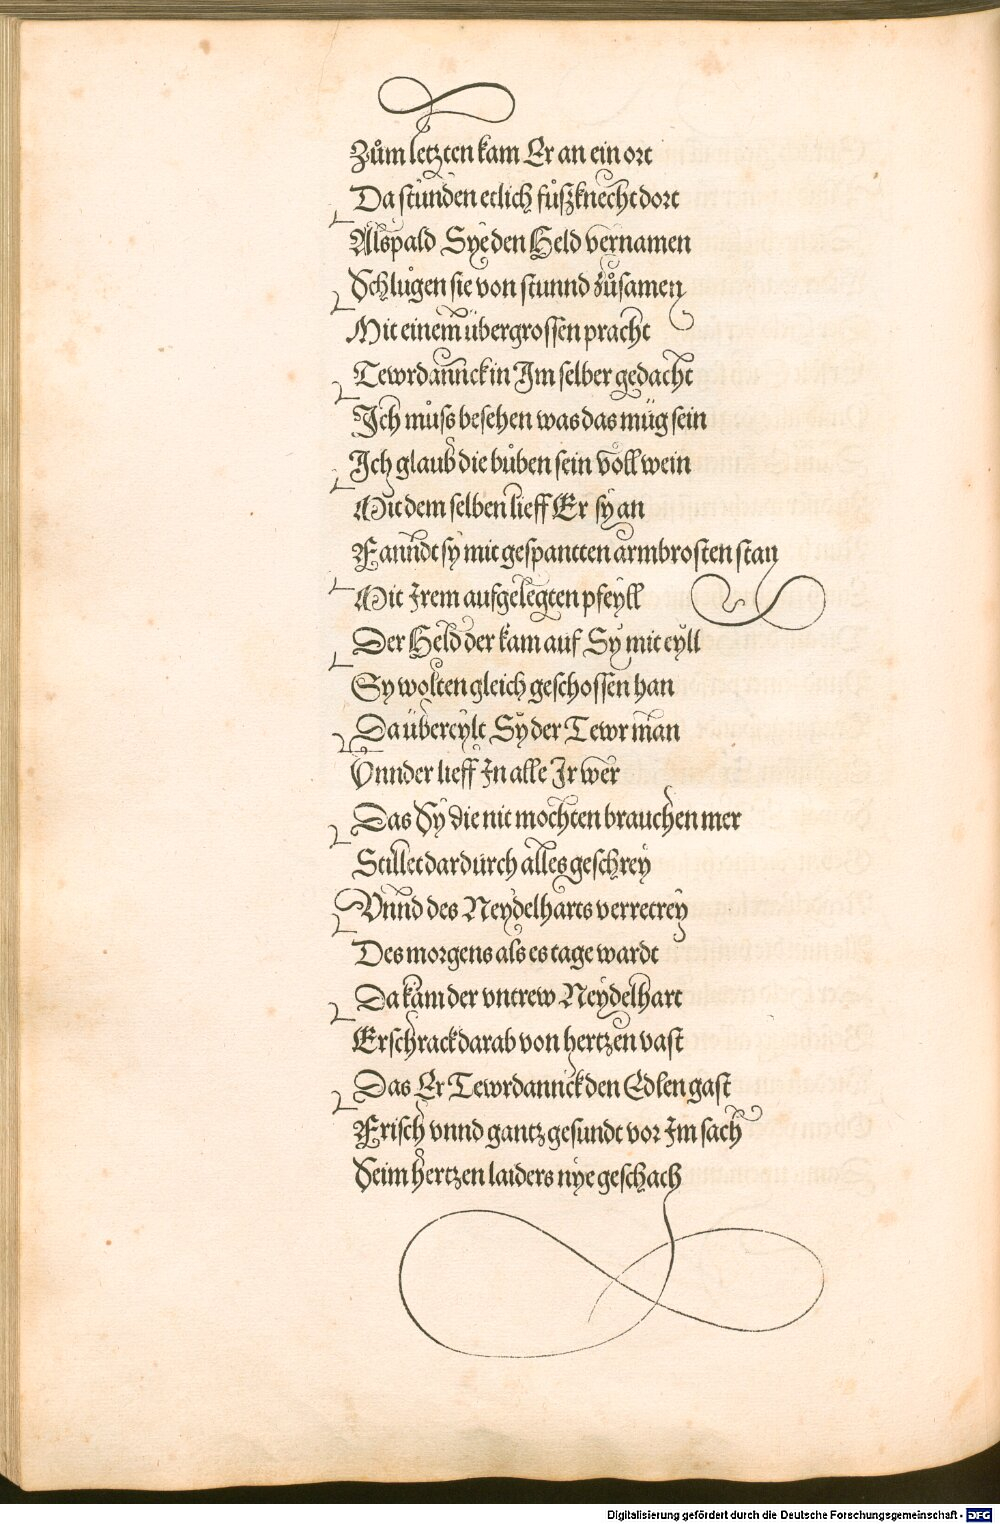 Zům letzten kam Er an ein ort
Da stůnden etlich fůszknecht dort
Alspald Sye den Held vernamen
Schlůgen sie von stunnd zůsamen
Mit einem übergrossen pracht
Tewrdannck in Im selber gedacht
Ich můss besehen was das müg sein
Ich glaub die bůben sein völl wein
Mit dem selben lieff Er sy an
Fanndt sy mit gespantten armbrosten stan
Mit Irem aufgelegten pfeyll
Der Held der kam auf Sy mit eyll
Sy wolten gleich geschossen han
Da übereylt Sy der Tewr man
Vnnder lieff In alle Ir wer
Das Sy die nit mochten brauchen mer
Stillet dardurch alles geschrey
Vnnd des Neydelharts verretrey
Des morgens als es tage wardt
Da kam der vntrew Neydelhart
Erschrack darab von hertzen vast
Das Er Tewrdannck den Edlen gast
Frisch vnnd gantz gesundt vor Im sach
Seim hertzen laiders nye geschach
Digitalisierung gefördert durch die Deutsche Forschungsgemeinschaft - DFG